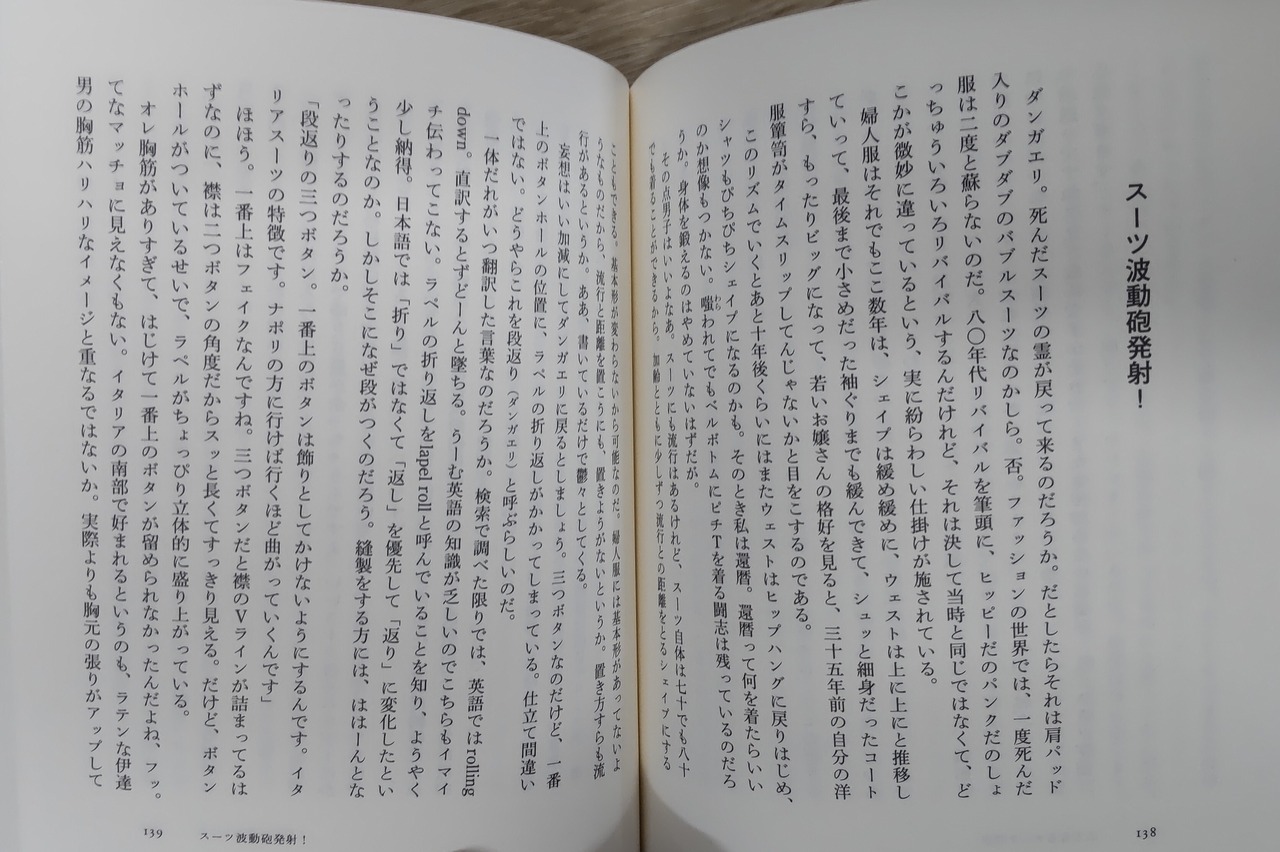 スーツ波動砲発射！
ダンガエリ。死んだスーツの霊が戻って来るのだろうか。だとしたらそれは肩パッド
入りのダブダブのバブルスーツなのかしら。否。ファッションの世界では、一度死んだ
服は二度と蘇らないのだ。八〇年代リバイバルを筆頭に、ヒッピーだのパンクだのしょ
っちゅういろいろリバイバルするんだけれど、それは決して当時と同じではなくて、ど
こかが微妙に違っているという、実に紛らわしい仕掛けが施されている。
婦人服はそれでもここ数年は、シェイプは緩め緩めに、ウェストは上に上にと推移し
ていって、最後まで小さめだった袖ぐりまでも緩んできて、シュッと細身だったコート
すら、もったりビッグになって、若いお嬢さんの格好を見ると、三十五年前の自分の洋
服箪笥がタイムスリップしてんじゃないかと目をこするのである。
このリズムでいくとあと十年後くらいにはまたウェストはヒップハングに戻りはじめ、
シャツもぴちぴちシェイプになるのかも。そのとき私は還暦。還暦って何を着たらいい
のか想像もつかない。嗤われてでもベルボトムにピチTを着る闘志は残っているのだろ
わら
うか。身体を鍛えるのはやめていないはずだが。
その点男子はいいよなあ。スーツにも流行はあるけれど、スーツ自体は七十でも八十
でも着ることができるから。加齢とともに少しずつ流行との距離をとるシェイプにする
138
こともできる。基本形が変わらないから可能なのだ。婦人服には基本形があってないよ
うなものだから、流行と距離を置こうにも、置きようがないというか。置き方すらも流
行があるというか。ああ、書いているだけで鬱々としてくる。
妄想はいい加減にしてダンガエリに戻るとしましょう。三つボタンなのだけど、一番
上のボタンホールの位置に、ラペルの折り返しがかかってしまっている。仕立て間違い
ではない。どうやらこれを段返り（ダンガエリ）と呼ぶらしいのだ。
一体だれがいつ翻訳した言葉なのだろうか。検索で調べた限りでは、英語ではrolling
down。直訳するとずどーんと墜ちる。うーむ英語の知識が乏しいのでこちらもイマイ
チ伝わってこない。ラペルの折り返しをlapel rollと呼んでいることを知り、ようやく
少し納得。日本語では「折り」ではなくて「返し」を優先して「返り」に変化したとい
うことなのか。しかしそこになぜ段がつくのだろう。縫製をする方には、ははーんとな
ったりするのだろうか。
「段返りの三つボタン。一番上のボタンは飾りとしてかけないようにするんです。イタ
リアスーツの特徴です。ナポリの方に行けば行くほど曲がっていくんです」
ほほう。一番上はフェイクなんですね。三つボタンだと襟のVラインが詰まってるは
ずなのに、襟は二つボタンの角度だからスッと長くてすっきり見える。だけど、ボタン
ホールがついているせいで、ラペルがちょっぴり立体的に盛り上がっている。
オレ胸筋がありすぎて、はじけて一番上のボタンが留められなかったんだよね、フッ。
てなマッチョに見えなくもない。イタリアの南部で好まれるというのも、ラテンな伊達
男の胸筋ハリハリなイメージと重なるではないか。実際よりも胸元の張りがアップして
139 スーツ波動砲発射！